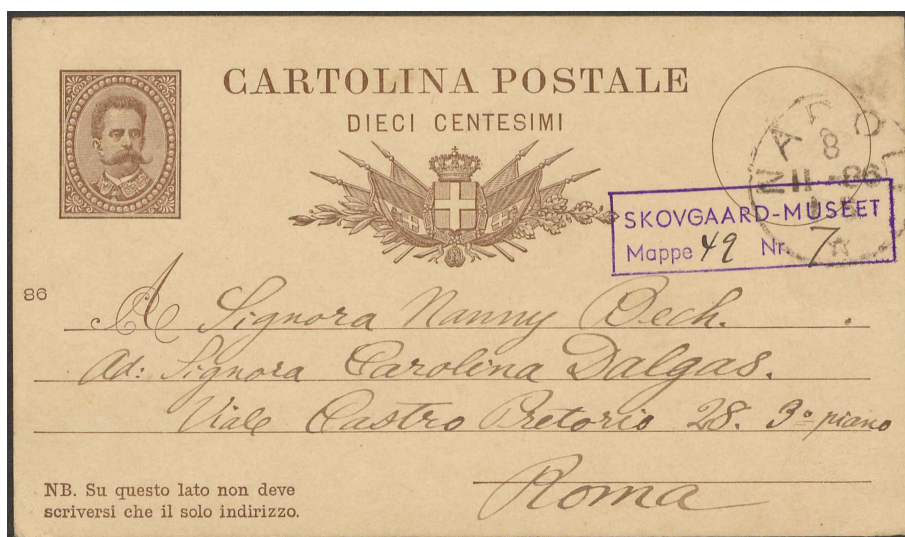 CARTOLINA POSTALE
DIECI CENTESIMI
NAPOLI
8
11 - 86
SKOVGAARD-MUSEET
Mappe 49 Nr. 7
86
A Signora Nanny Bech.
Ad: Signora Carolina Dalgas.
Viale Castro Pretorio 28. 3º piano
Roma
NB. Su questo lato non deve
scriversi che il solo indirizzo.